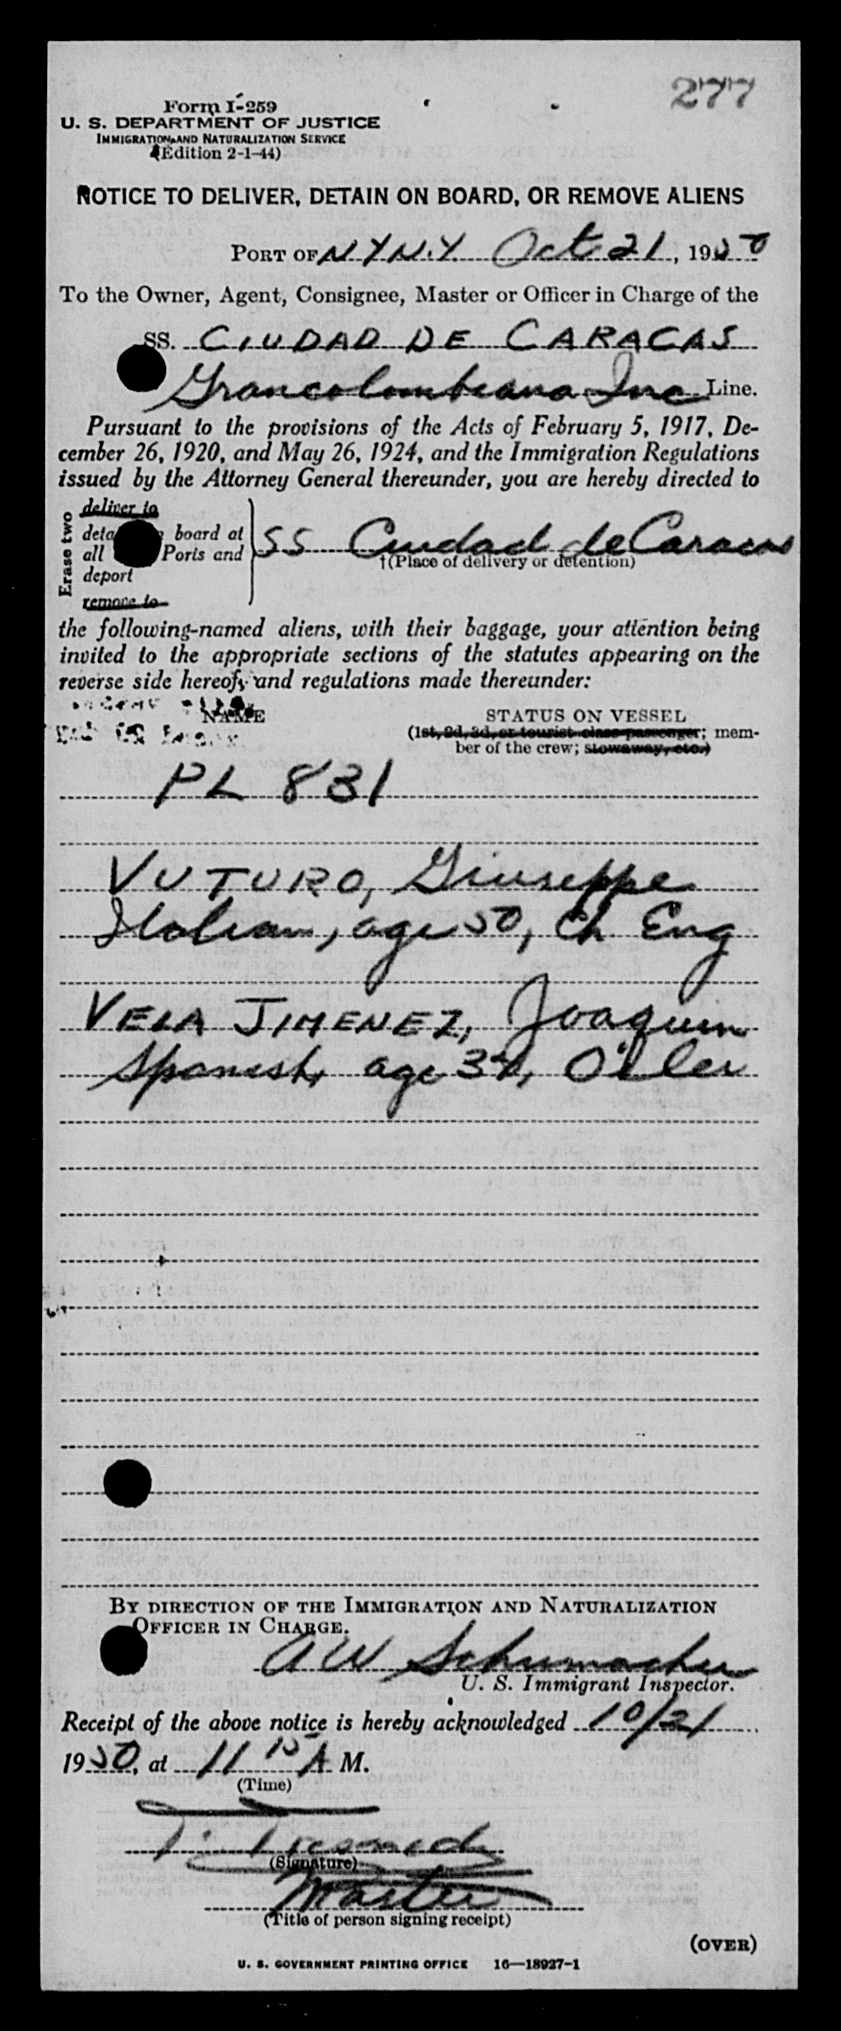 277
Form I-259
U. S. DEPARTMENT OF JUSTICE
IMMIGRATION AND NATURALIZATION SERVICE
(Edition 2-1-44)
NOTICE TO DELIVER, DETAIN ON BOARD, OR REMOVE ALIENS
PORT OF N Y N.Y Oct 21, 1950
To the Owner, Agent, Consignee, Master or Officer in Charge of the
SS. CIUDAD DE CARACAS
Grancolombiana Inc Line.
Pursuant to the provisions of the Acts of February 5, 1917, De-
cember 26, 1920, and May 26, 1924, and the Immigration Regulations
issued by the Attorney General thereunder, you are hereby directed to
Erase two
deliver to
board at
all Ports and
deport
remove to
SS Ciudad de Caracas
†(Place of delivery or detention)
the following-named aliens, with their baggage, your attention being
invited to the appropriate sections of the statutes appearing on the
reverse side hereof, and regulations made thereunder:
NAME
STATUS ON VESSEL
(1st, 2d, 3d, or tourist class passenger; mem-
ber of the crew; stowaway, etc.)
PL 831
VUTURO, Giuseppe
Italian, age 50, Ch Eng
VELA JIMENEZ, Joaquin
Spanish, age Oiler
BY DIRECTION OF THE IMMIGRATION AND NATURALIZATION
OFFICER IN CHARGE.
A W Schumacher
U. S. Immigrant Inspector.
Receipt of the above notice is hereby acknowledged 10/21
1950, at 11 15 A M.
(Time)
(Signature)
Master
(Title of person signing receipt)
(OVER)
U. S. GOVERNMENT PRINTING OFFICE 16—18927-1